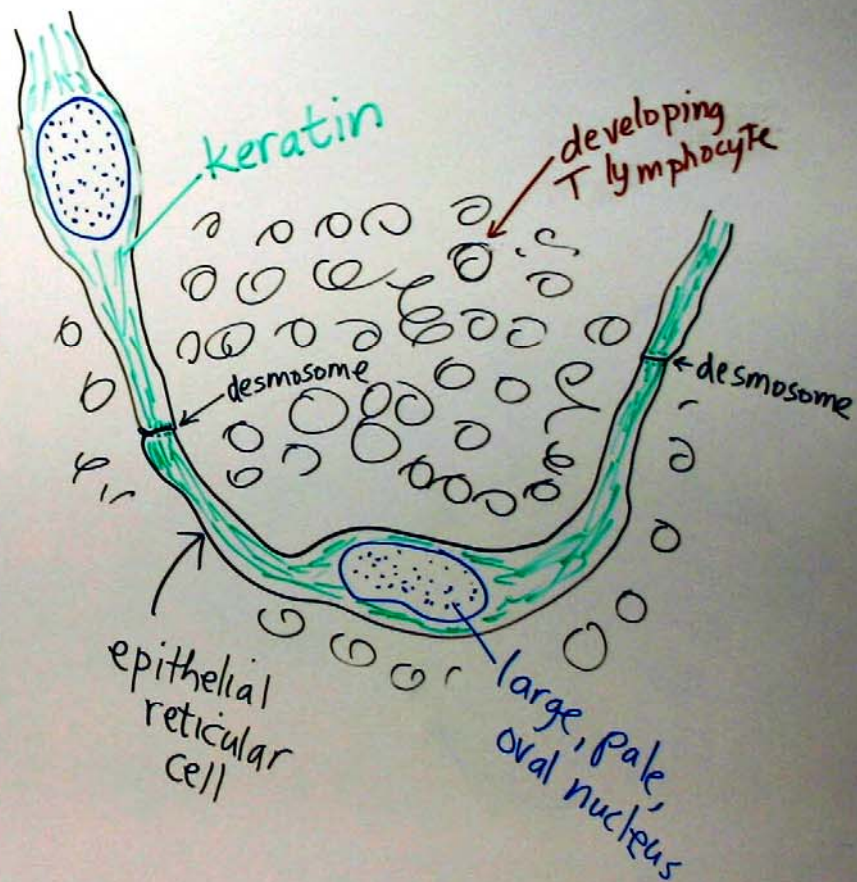 keratin
developing
T lymphocyte
desmosome
desmosome
epithelial
reticular
cell
large, pale,
oval nucleus